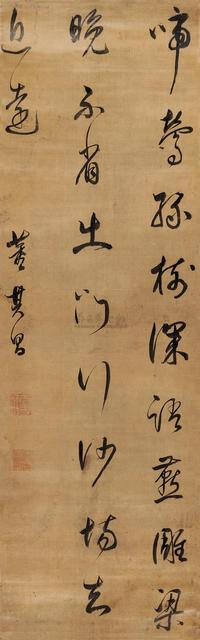 啼鶯綠樹深語燕雕梁
晚不省出門行沙場知
近遠 董其昌